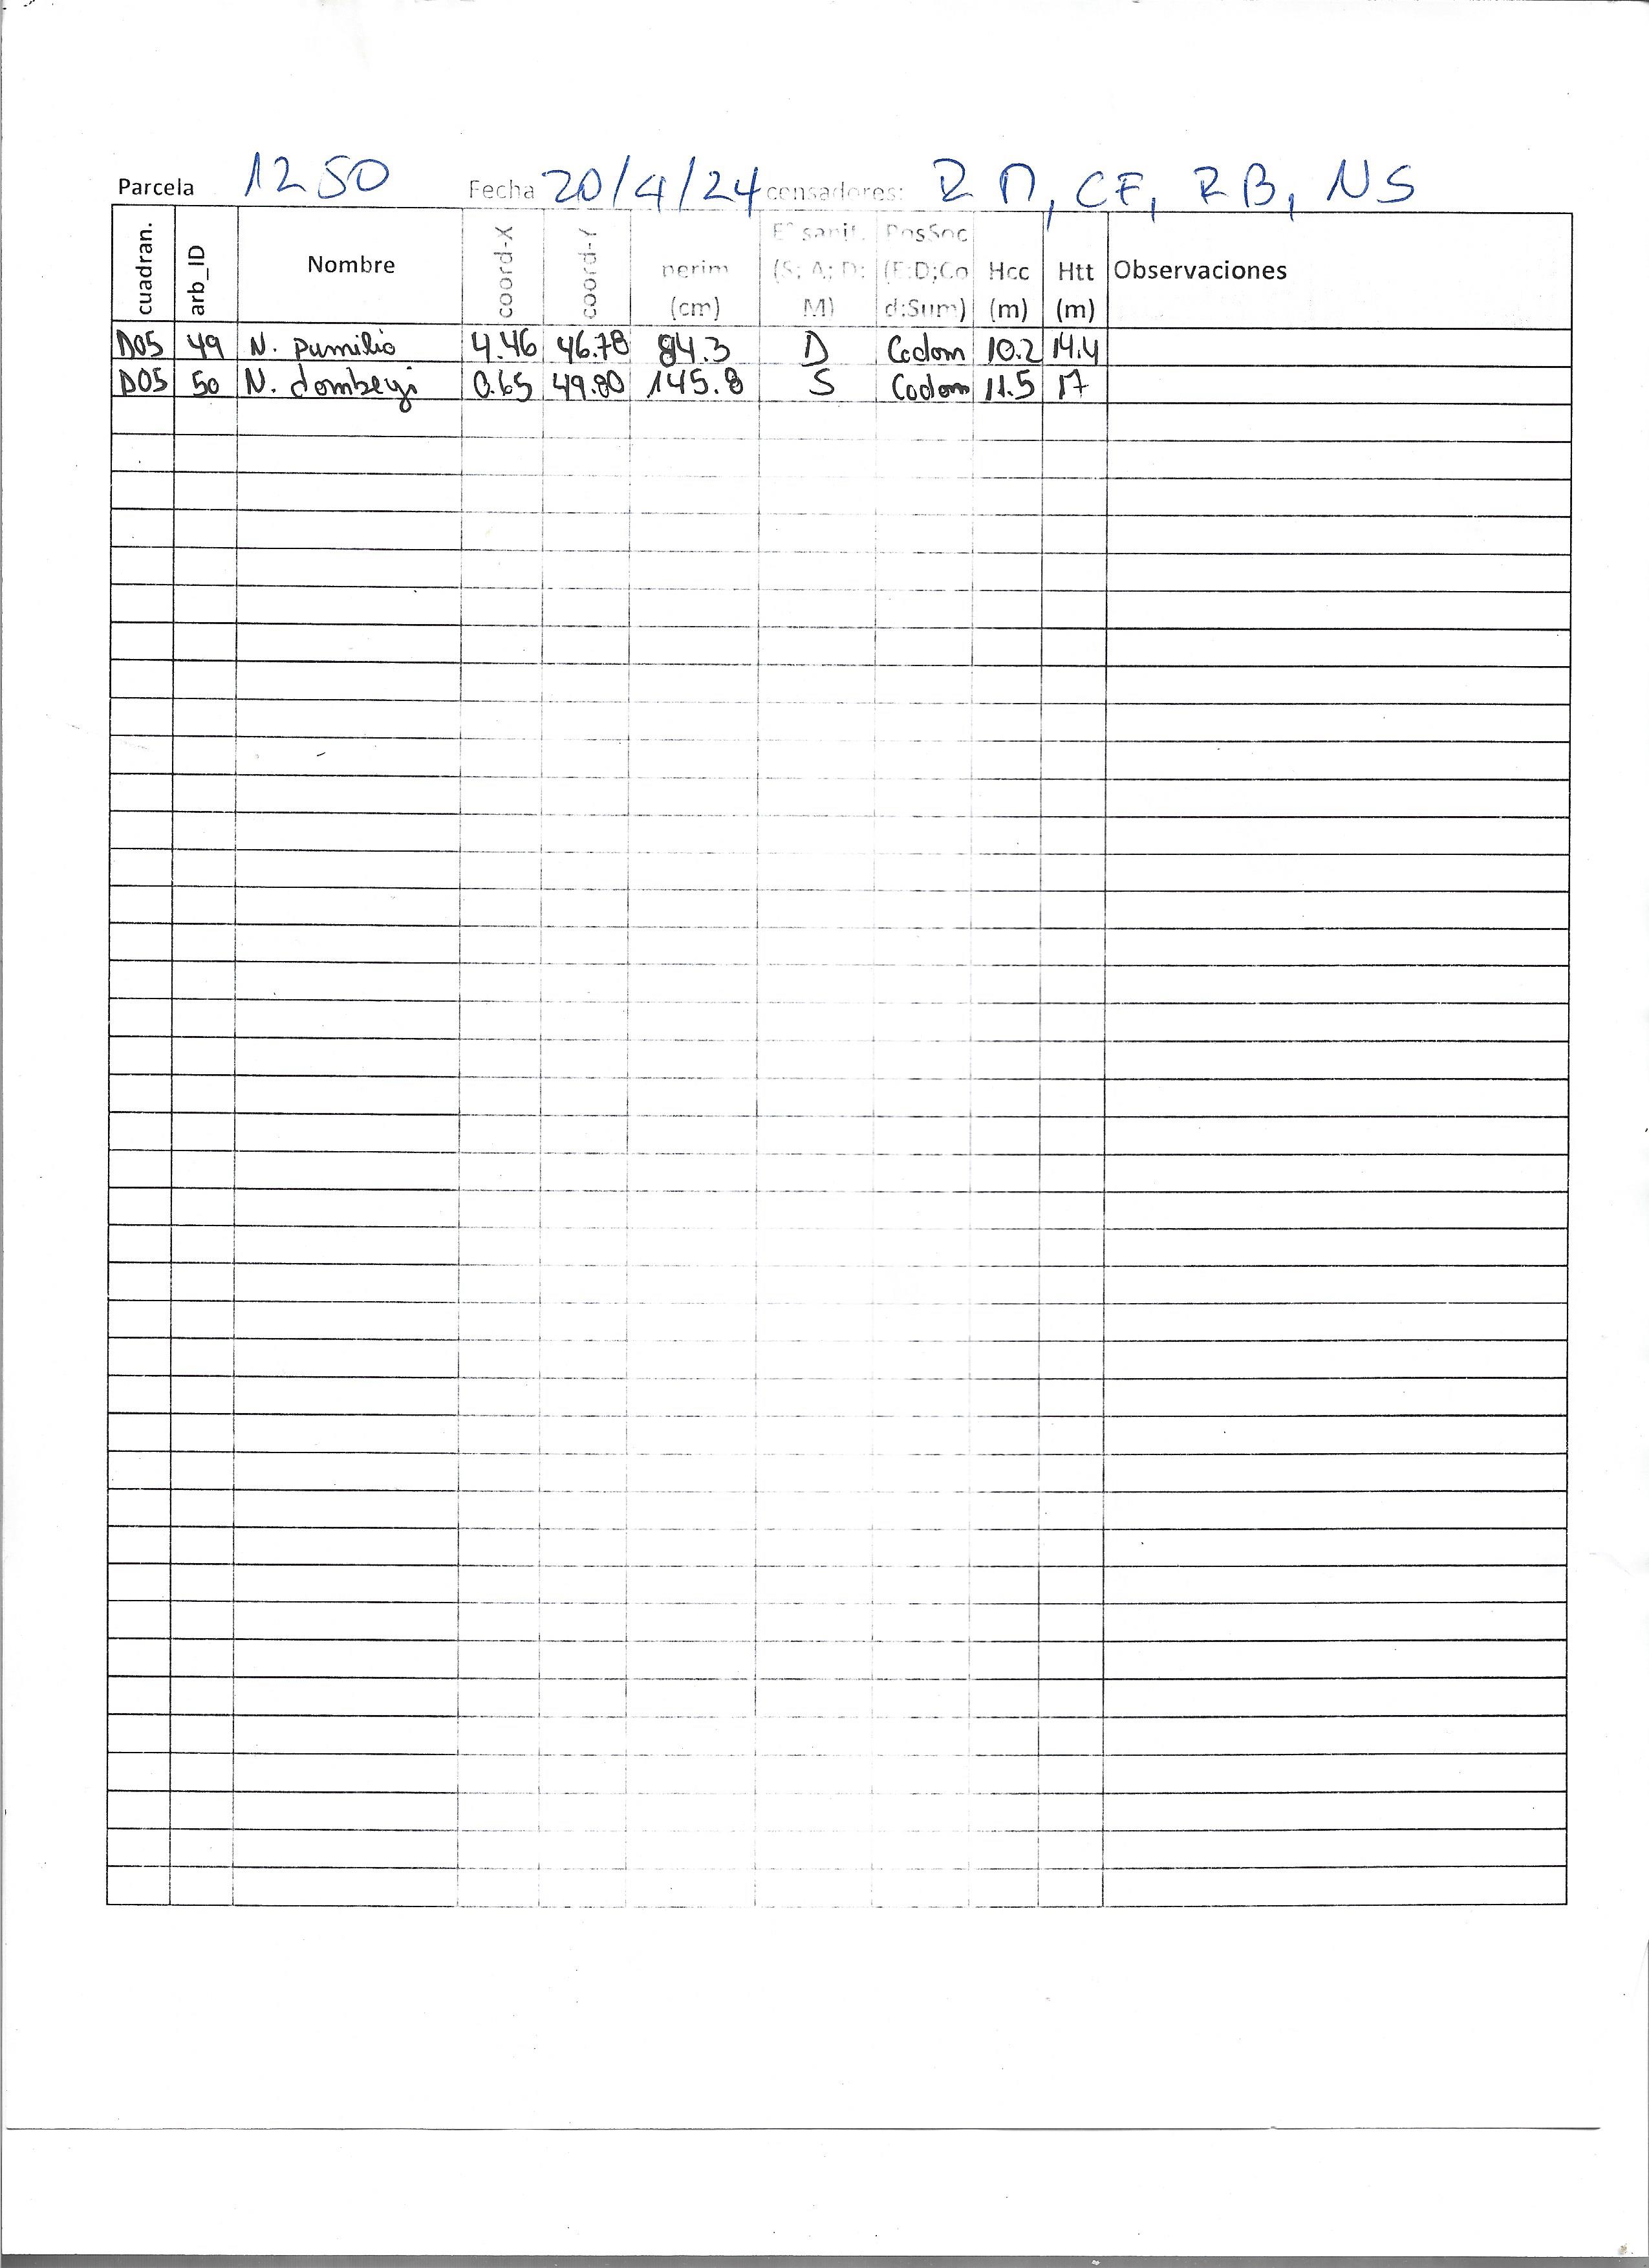 Parcela 1250 Fecha 20/4/24 censadores: RM, CF, RB, NS
cuadran. arb_ID Nombre coord-X coord-Y perim (cm) Eº sanit. (S; A; D; M) PosSoc (E;D;Cod;Sum) Hcc (m) Htt (m) Observaciones
D05 49 N. pumilio 4.46 46.78 84.3 D Codom 10.2 14.4
D05 50 N. dombeyi 0.65 49.80 145.8 S Codom 11.5 17